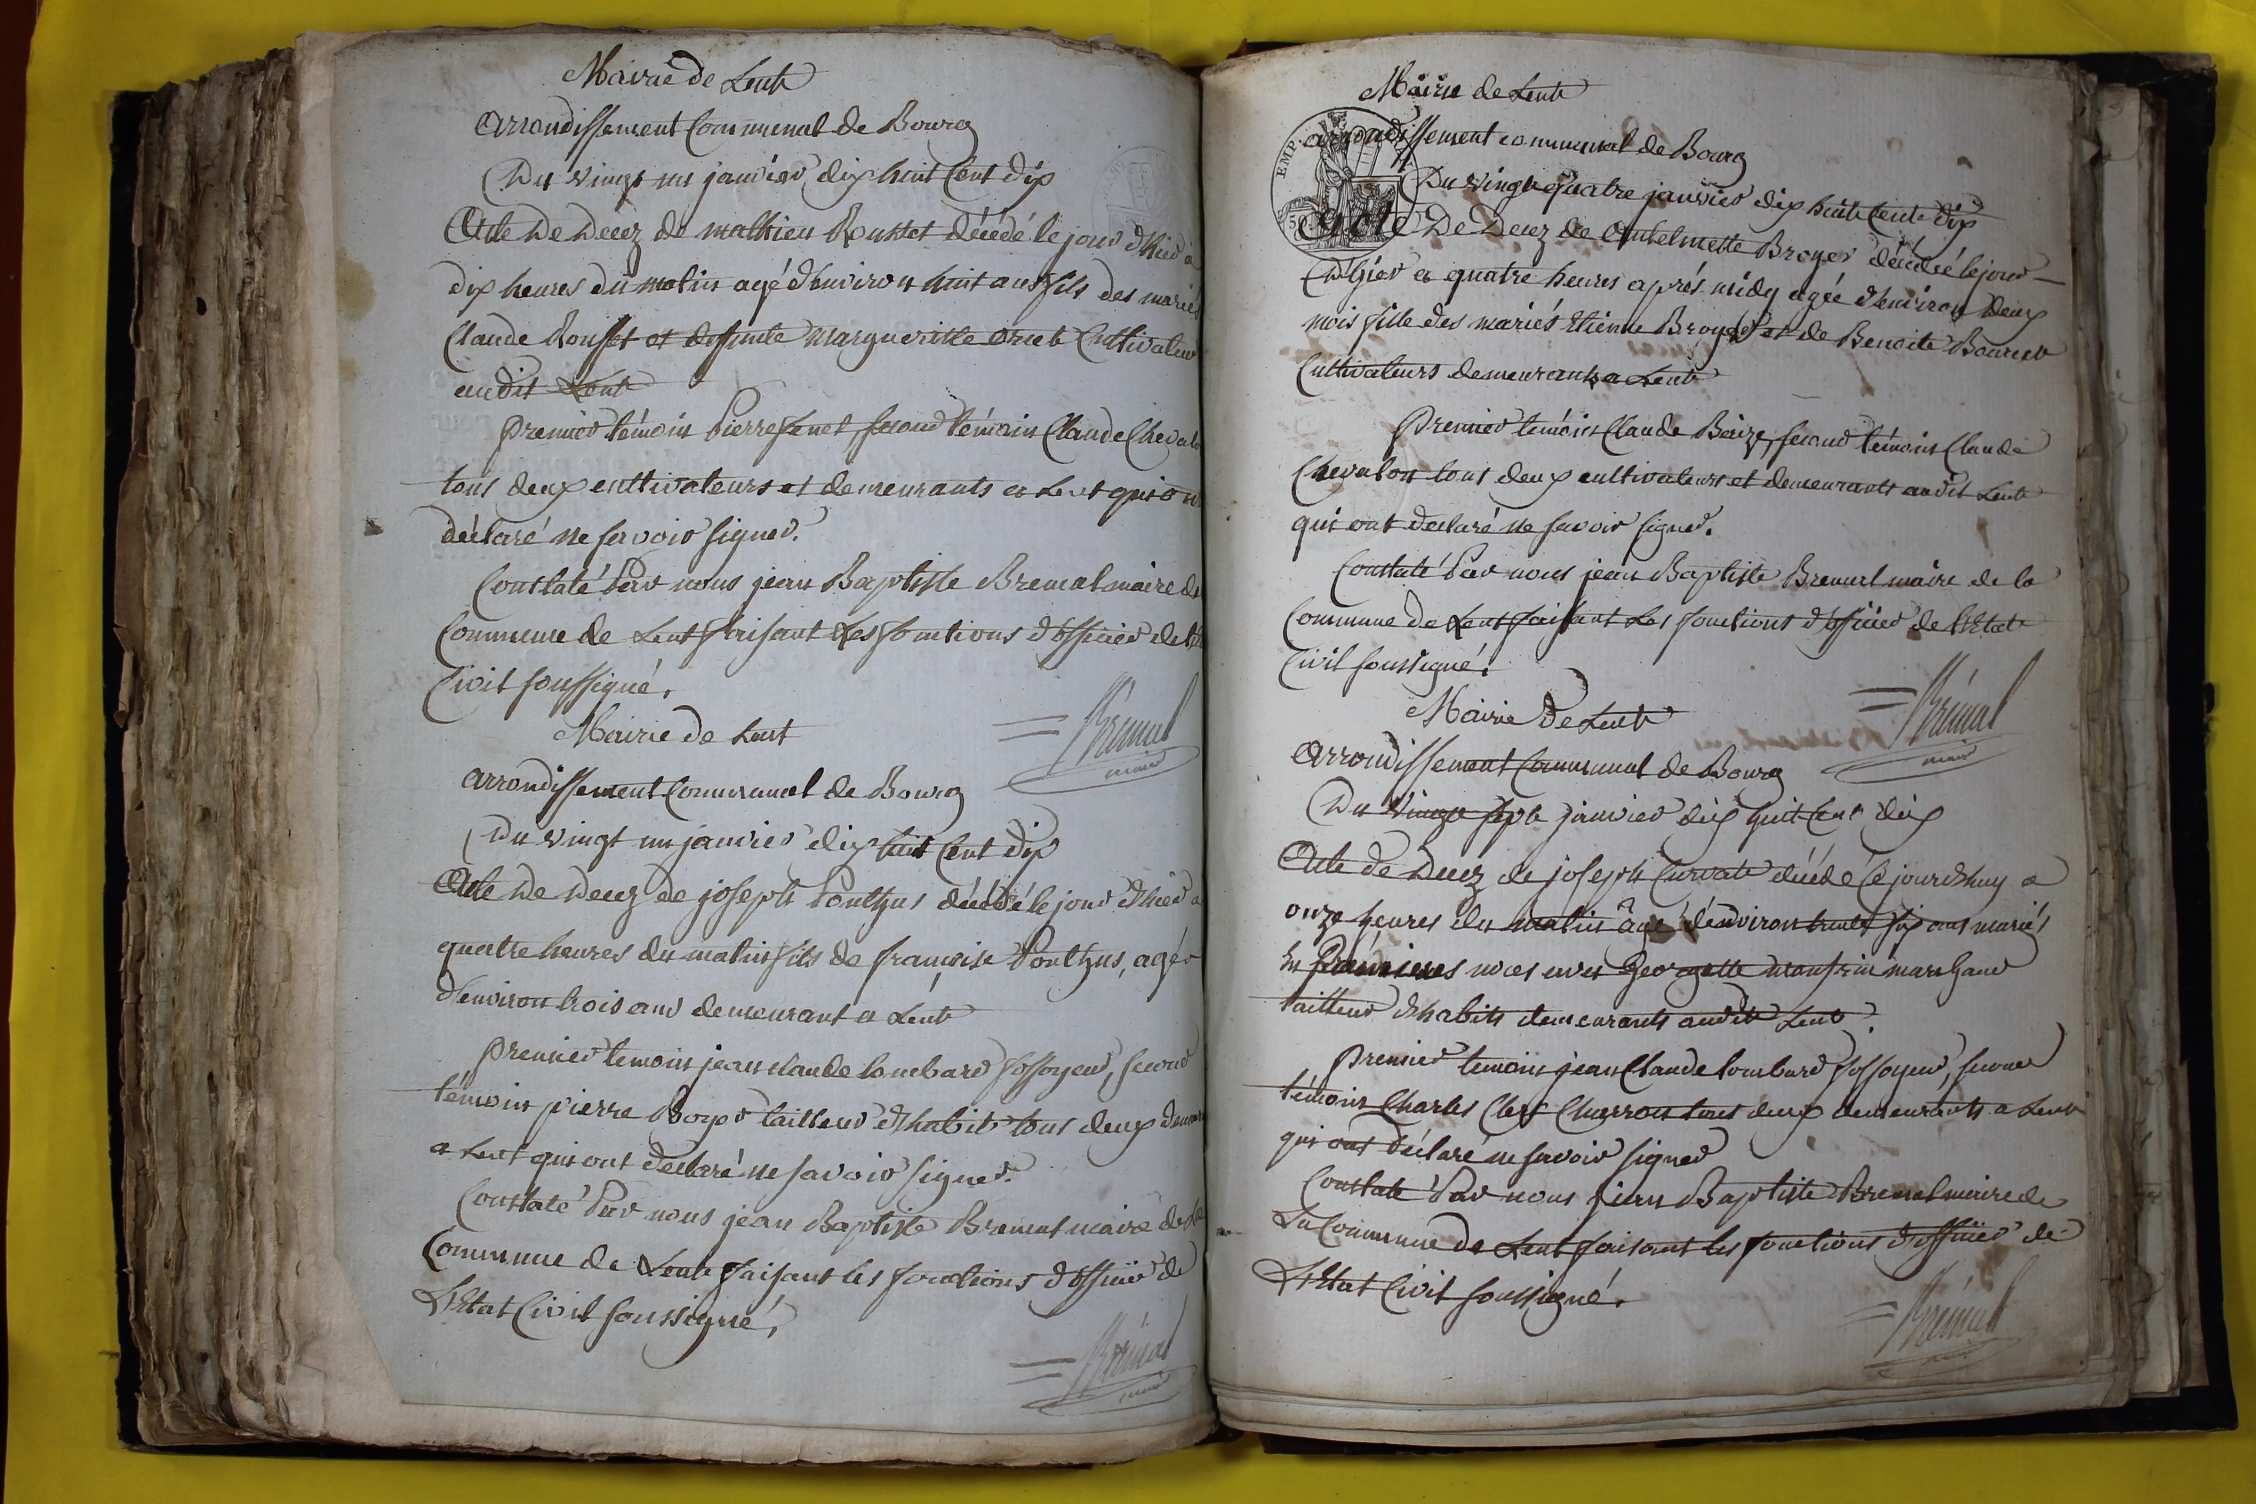 Mairie de Lent
arrondissement Communal de Bourg
Du vingt un janvier dix huit Cent dix
Acte De Decez de mathieu Rousset décédé le jour d'hier a
dix heures du matin agé d'environ huit ans fils des mariés
Claude Rousset et deffunte Margueritte Cultivateur
audit Lent
premier témoin pierre second témoin Claude Cheval
tous deux cultivateurs et demeurants a Lent qui on
déclaré ne savoir signer.
Constaté Par nous jean Baptiste Bremal maire de
Commune de Lent faisant Les fonctions d'officier de
Civil soussigné.
Brémal
maire
Mairie de Lent
arrondissement Communal de Bourg
Du vingt un janvier dix huit Cent dix
Acte De Decez de joseph Ponthus décédé le jour d'hier a
quatre heures du matin fils de françoise Ponthus, agé
d'environ trois ans demeurant a Lent
premier temoin jean claude lombard fossoyeur, second
témoin pierre Boyer tailleur d'habit tous deux
a Lent qui ont declaré ne savoir signer.
Constaté Par nous jean Baptiste Bremal maire de
Commune de Lent faisant les fonctions d'officier de
L'Etat Civil soussigné,
Brémal
maire
Mairie de Lent
EMP.
arrondissement communal de Bourg
Du vingt quatre janvier dix huit Cent dix
50
Acte De Decez de Antelmette Broyer décédé le jour
D'hier a quatre heures aprés midy agée d'environ deux
mois fille des mariés Etienne Broyer et de Benoite
Cultivateurs demeurants a Lent
premier temoin Claude Baize, second témoin Claude
Chevalon tous deux cultivateurs et demeurants audit Lent
qui ont declaré ne savoir signer.
Constaté Par nous jean Baptiste Bremal maire de la
Commune de Lent faisant Les fonctions d'officier de L'Etat
Civil soussigné.
Brémal
maire
Mairie De Lent
arrondissement Communal de Bourg
Du Vingt sept janvier dix huit Cent dix
Acte de Decez de joseph Curvat décédé Ce jourdhuy a
onze heures du matin âgé d'environ trente six ans mariés
En Premieres noces avec Georgette marchand
tailleur d'habits demeurants audit Lent.
premier temoin jean Claude lombard fossoyeur, second
témoin Charles Clerc Charron tous deux demeurants a Lent
qui ont déclaré ne savoir signer
Constaté Par nous jean Baptiste Bremal maire de
La Commune de Lent faisant les fonctions d'officier de
L'Etat Civil soussigné.
Brémal
maire